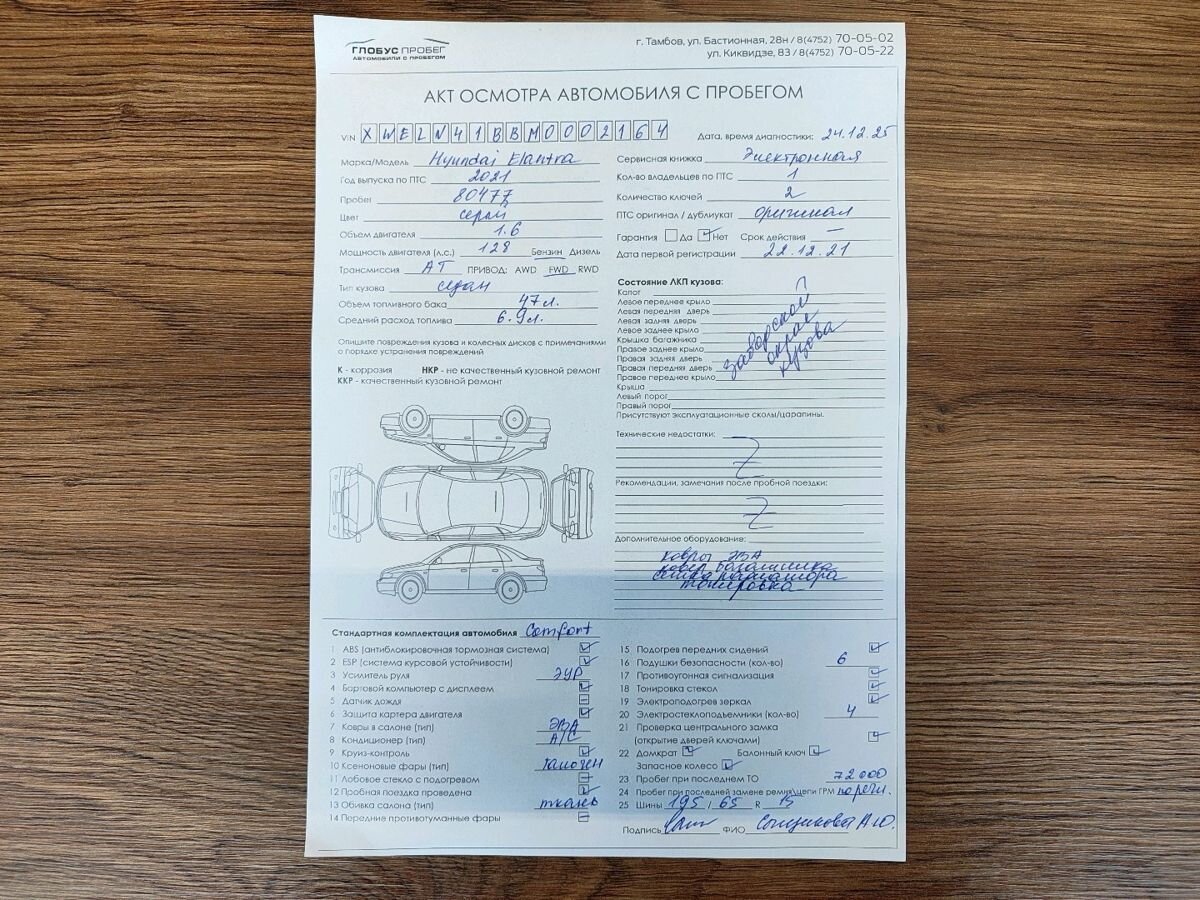 ГЛОБУС ПРОБЕГ
АВТОМОБИЛИ С ПРОБЕГОМ
г. Тамбов, ул. Бастионная, 28н / 8(4752) 70-05-02
ул. Киквидзе, 83 / 8(4752) 70-05-22
АКТ ОСМОТРА АВТОМОБИЛЯ С ПРОБЕГОМ
VIN XWELN41BBM0002164
Дата, время диагностики: 24.12.25
Марка/Модель Hyundai Elantra
Год выпуска по ПТС 2021
Пробег 80477
Цвет серый
Объем двигателя 1.6
Мощность двигателя (л.с.) 128 Бензин Дизель
Трансмиссия АТ ПРИВОД: AWD FWD RWD
Тип кузова седан
Объем топливного бака 47 л.
Средний расход топлива 6.9 л.
Сервисная книжка Электронная
Кол-во владельцев по ПТС 1
Количество ключей 2
ПТС оригинал / дубликат оригинал
Гарантия Да Нет Срок действия —
Дата первой регистрации 22.12.21
Опишите повреждения кузова и колесных дисков с примечаниями
о порядке устранения повреждений
К - коррозия НКР - не качественный кузовной ремонт
ККР - качественный кузовной ремонт
Состояние ЛКП кузова:
Капот
Левое переднее крыло
Левая передняя дверь
Левая задняя дверь
Левое заднее крыло
Крышка багажника
Правое заднее крыло
Правая задняя дверь
Правая передняя дверь
Правое переднее крыло
Крыша
Левый порог
Правый порог
заводской
окрас
кузова
Присутствуют эксплуатационные сколы/царапины.
Технические недостатки:
Z
Рекомендации, замечания после пробной поездки:
Z
Дополнительное оборудование:
ковры ЭВА
ковер багажника
сетка радиатора
тонировка
Стандартная комплектация автомобиля Comfort
1 ABS (антиблокировочная тормозная система)
2 ESP (система курсовой устойчивости)
3 Усилитель руля ЭУР
4 Бартовой компьютер с дисплеем
5 Датчик дождя
6 Защита картера двигателя
7 Ковры в салоне (тип) ЭВА
8 Кондиционер (тип) А/С
9 Круиз-контроль
10 Ксеноновые фары (тип) галоген
11 Лобовое стекло с подогревом
12 Пробная поездка проведена
13 Обивка салона (тип) ткань
14 Передние противотуманные фары
15 Подогрев передних сидений
16 Подушки безопасности (кол-во) 6
17 Противоугонная сигнализация
18 Тонировка стекол
19 Электроподогрев зеркал
20 Электростеклоподъемники (кол-во) 4
21 Проверка центрального замка
(открытие дверей ключами)
22 Домкрат Балонный ключ
Запасное колесо
23 Пробег при последнем ТО 72000
24 Пробег при последней замене ремня\цепи ГРМ
25 Шины 195 / 65 R 15
Подпись ФИО